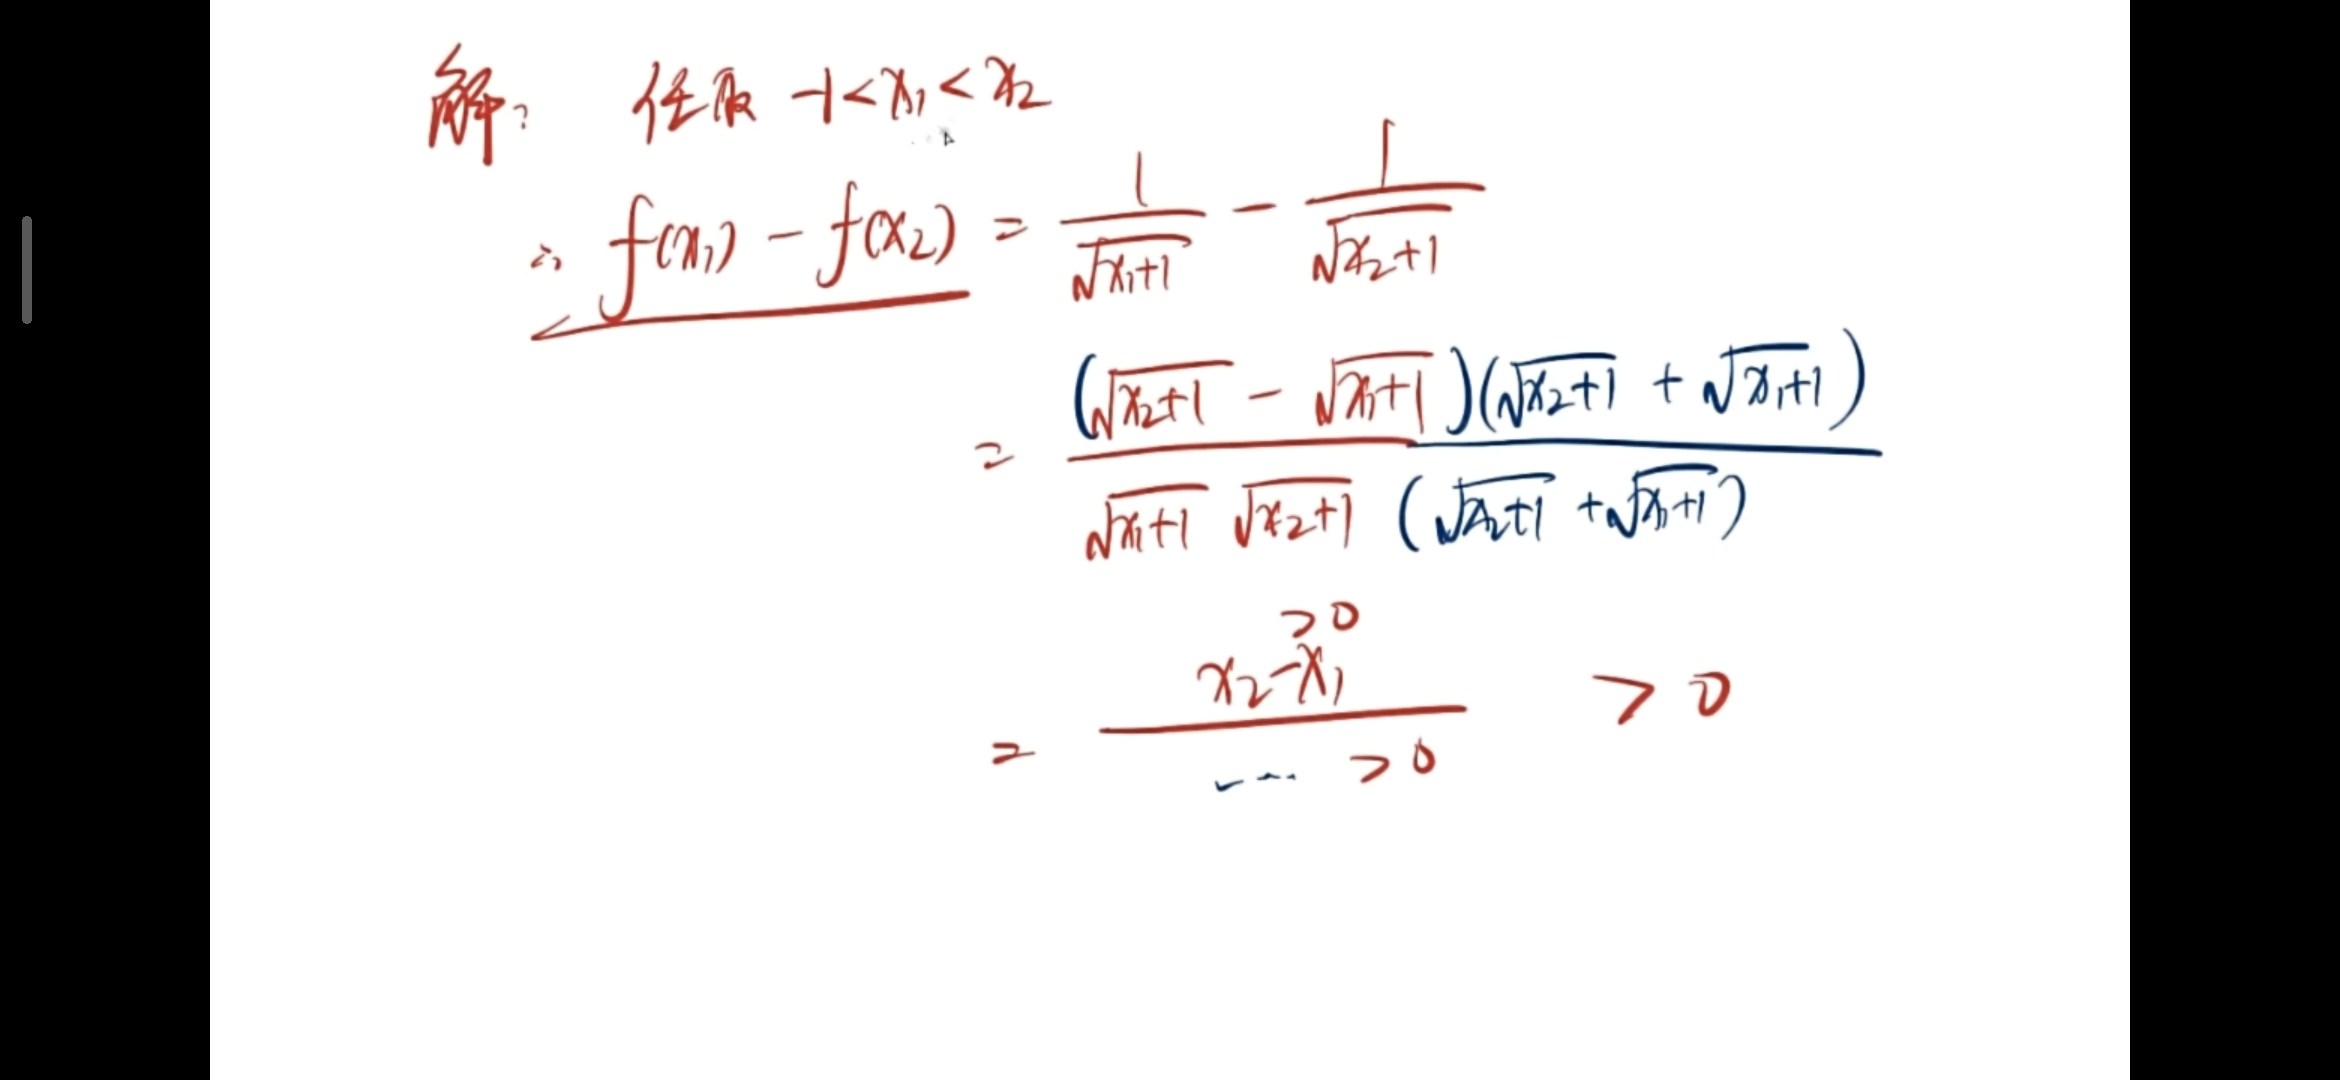 解: 任取 -1<x₁<x₂
∴ f(x₁) - f(x₂) = 1/√(x₁+1) - 1/√(x₂+1)
= (√(x₂+1) - √(x₁+1))(√(x₂+1) + √(x₁+1)) / √(x₁+1) √(x₂+1) (√(x₂+1) + √(x₁+1))
>0
= x₂-x₁ / ---- >0 >0